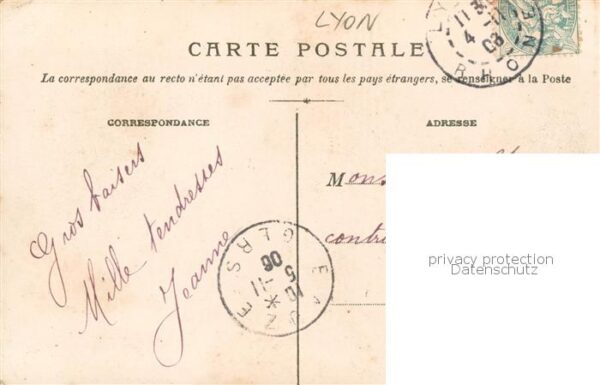 LYON
CARTE POSTALE
La correspondance au recto n'étant pas acceptée par tous les pays étrangers, se renseigner à la Poste
CORRESPONDANCE
ADRESSE
Gros baisers
Mille tendresses
Jeanne
Mons
contr
privacy protection
Datenschutz
LY
RHONE
5 -11
06